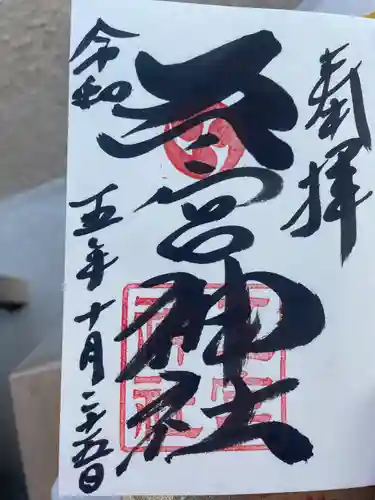 奉拝
五宮神社
令和五年十月二十五日